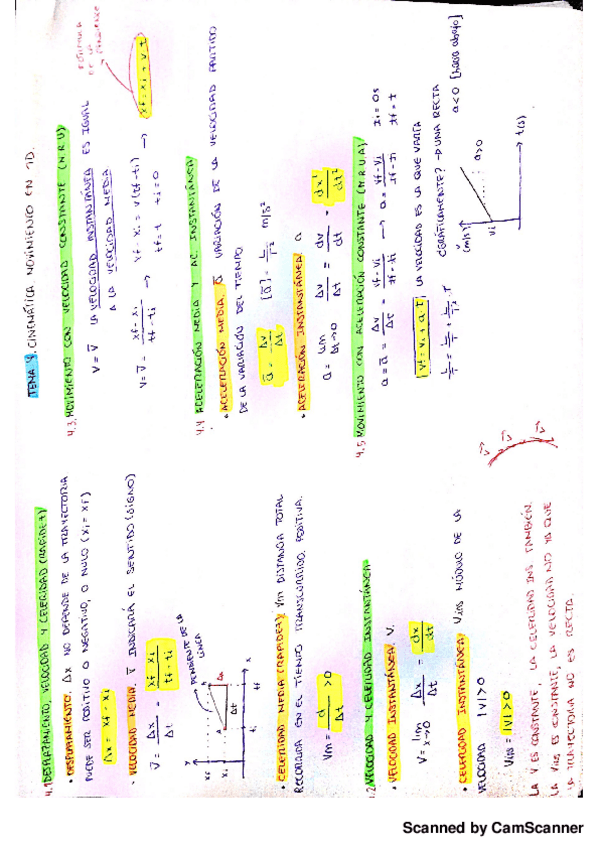 TEMA 4. CINEMÁTICA MOVIMIENTO EN 1D.
4.1 DESPLAZAMIENTO, VELOCIDAD Y CELERIDAD (RAPIDEZ)
• DESPLAZAMIENTO. Δx NO DEPENDE DE LA TRAYECTORIA
PUEDE SER POSITIVO O NEGATIVO, O NULO (xi = xf)
Δx = xf - xi
• VELOCIDAD MEDIA. v̄ INDICARÁ EL SENTIDO (SIGNO)
v̄ = Δx/Δt = xf - xi / tf - ti
PENDIENTE DE LA
LÍNEA
xf
xi
Δx
Δt
ti
tf
• CELERIDAD MEDIA (RAPIDEZ) Vm DISTANCIA TOTAL
RECORRIDA EN EL TIEMPO TRANSCURRIDO. POSITIVA.
Vm = d/Δt >0
4.2 VELOCIDAD Y CELERIDAD INSTANTÁNEA
• VELOCIDAD INSTANTÁNEA V.
V = lim x→0 Δx/Δt = dx/dt
• CELERIDAD INSTANTÁNEA Vins MÓDULO DE LA
VELOCIDAD |V|>0
Vins = |V|>0
LA V ES CONSTANTE, LA CELERIDAD INS TAMBIÉN.
LA Vins ES CONSTANTE, LA VELOCIDAD NO YA QUE
LA TRAYECTORIA NO ES RECTA.
4.3. MOVIMIENTO CON VELOCIDAD CONSTANTE (M R U)
V = v̄ LA VELOCIDAD INSTANTÁNEA ES IGUAL
A LA VELOCIDAD MEDIA
FÓRMULA
DE LA
V = v̄ = xf - xi / tf - ti → xf - xi = v(tf - ti) → xf = xi + v.t
tf = t ti = 0
4.4 ACELERACIÓN MEDIA Y AC. INSTANTÁNEA
• ACELERACIÓN MEDIA. ā VARIACIÓN DE LA VELOCIDAD PARTIDO
DE LA VARIACIÓN DEL TIEMPO
ā = Δv/Δt [ā] = L/T² m/s²
• ACELERACIÓN INSTANTÁNEA a
a = lim Δt→0 Δv/Δt = dv/dt = dx²/dt²
4.5 MOVIMIENTO CON ACELERACIÓN CONSTANTE (M R U A)
a = ā = Δv/Δt = vf - vi / tf - ti → a = vf - vi / tf - ti
ti = 0s
tf = t
vf = vi + a.t LA VELOCIDAD ES LA QUE VARÍA
L/T = L/T + L/T² . T
¿GRÁFICAMENTE? → UNA RECTA
a>0
a<0 [hacia abajo]
vi
t(s)
Scanned by CamScanner